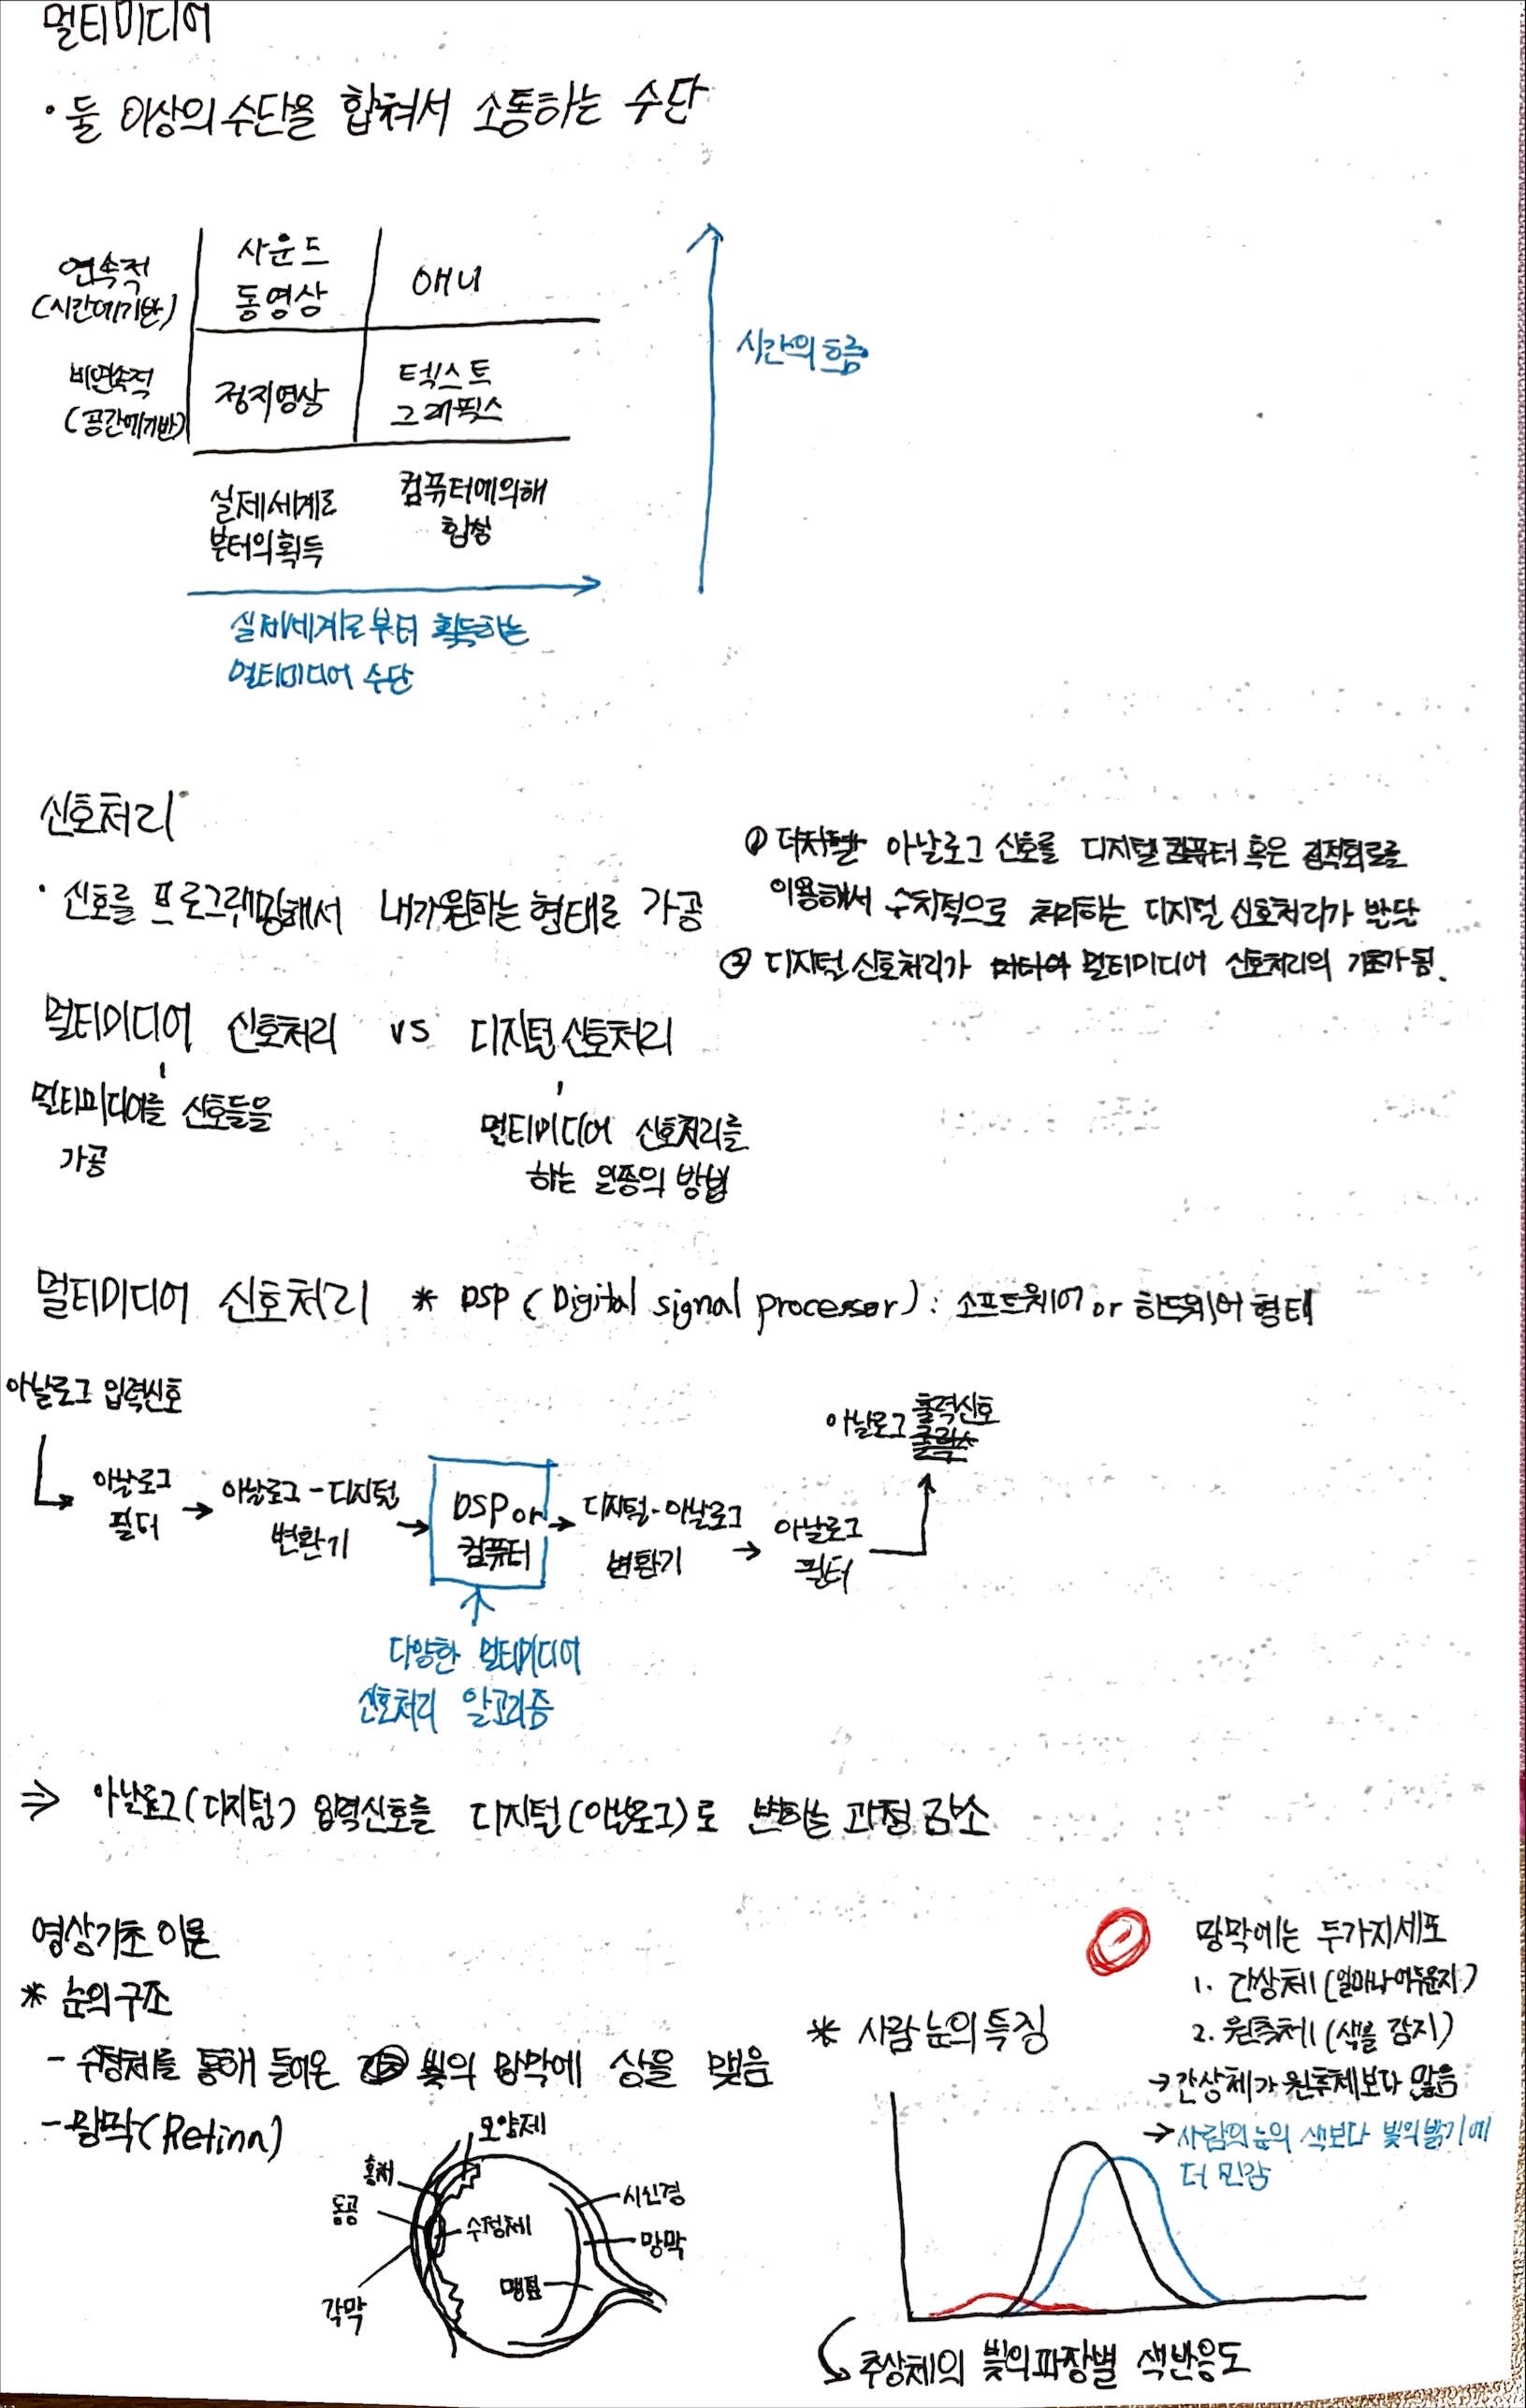 멀티미디어
· 둘 이상의 수단을 합쳐서 소통하는 수단
연속적
(시간에기반)
사운드
동영상
애니
비연속적
(공간에기반)
정지영상
텍스트
그래픽스
실제세계로
부터의획득
컴퓨터에의해
합성
실제세계로부터 획득하는
멀티미디어 수단
시간의 흐름
신호처리
· 신호를 프로그래밍해서 내가원하는 형태로 가공
① 디지털 아날로그 신호를 디지털컴퓨터 혹은 집적회로를
이용해서 수치적으로 처리하는 디지털 신호처리가 발단
② 디지털 신호처리가 멀티미디어 신호처리의 기초가됨.
멀티미디어 신호처리 vs 디지털 신호처리
멀티미디어를 신호들을
가공
멀티미디어 신호처리를
하는 일종의 방법
멀티미디어 신호처리 * DSP (Digital signal processor) : 소프트웨어 or 하드웨어 형태
아날로그 입력신호
아날로그
필터
아날로그 - 디지털
변환기
DSP or
컴퓨터
디지털-아날로그
변환기
아날로그
필터
아날로그 출력신호
다양한 멀티미디어
신호처리 알고리즘
⇒ 아날로그(디지털) 입력신호를 디지털(아날로그)로 변하는 과정 감소
영상기초 이론
* 눈의 구조
- 수정체를 통해 들어온 빛의 망막에 상을 맺음
- 망막(Retinn)
모양체
홍채
동공
수정체
각막
시신경
망막
맹점
* 사람 눈의 특징
망막에는 두가지세포
1. 간상체 (얼마나어두운지)
2. 원추체 (색을 감지)
→ 간상체가 원추체보다 많음
→ 사람의 눈의 색보다 빛의 밝기에
더 민감
추상체의 빛의파장별 색반응도